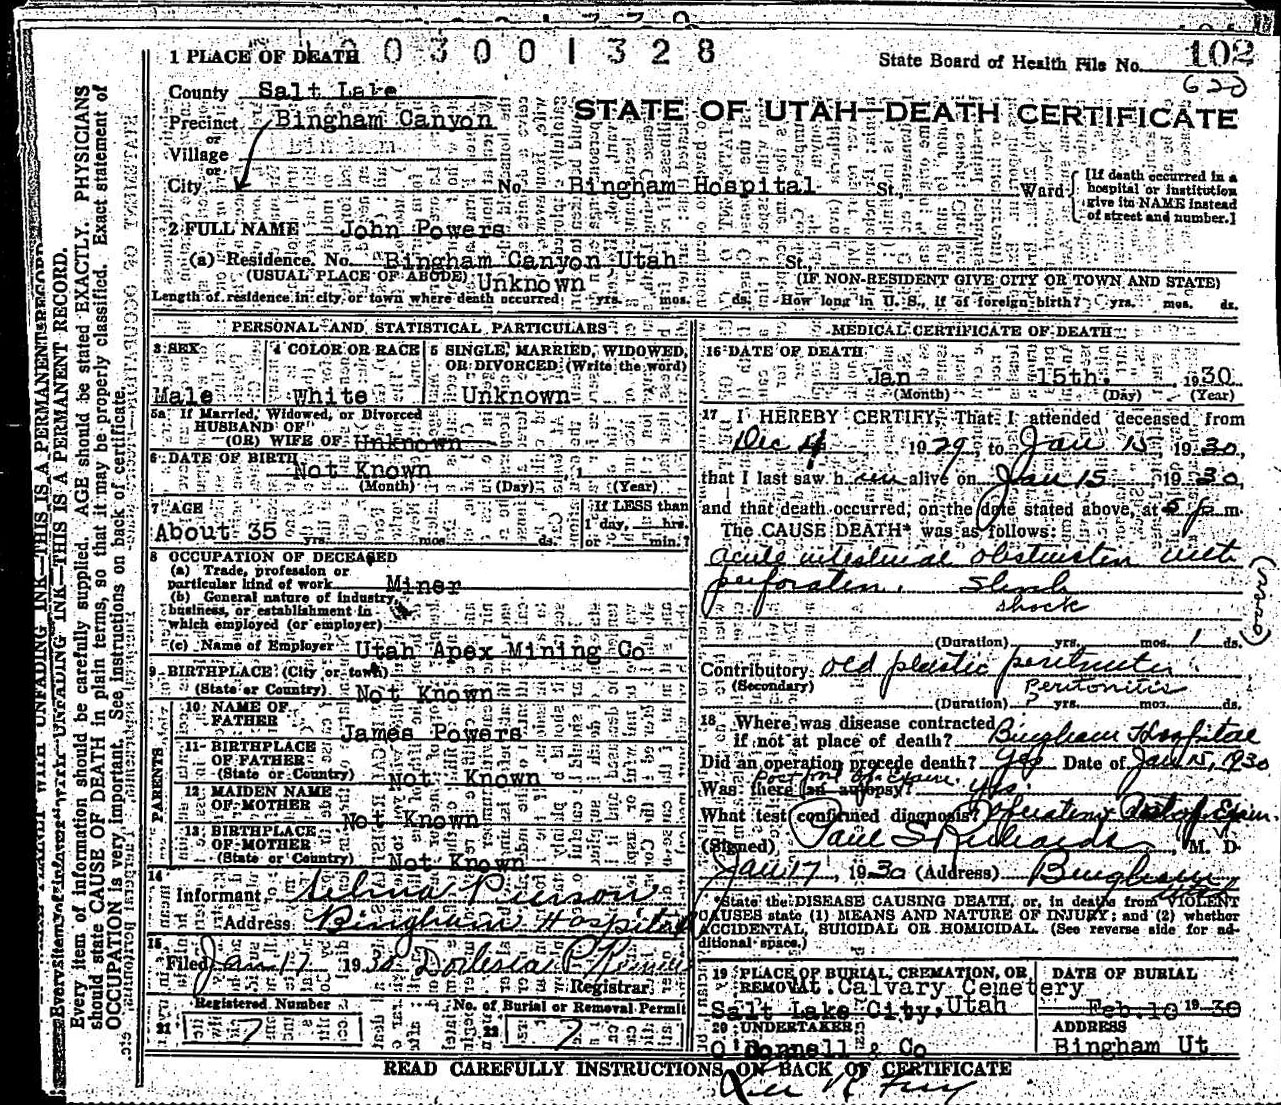 003001328
1 PLACE OF DEATH
State Board of Health File No. 102
620
County Salt Lake
STATE OF UTAH—DEATH CERTIFICATE
Precinct Bingham Canyon
or
Village
or
City No. Bingham Hospital St. Ward
[If death occurred in a hospital or institution give its NAME instead of street and number.]
2 FULL NAME John Powers
(a) Residence. No. Bingham Canyon Utah St.
(USUAL PLACE OF ABODE) (IF NON-RESIDENT GIVE CITY OR TOWN AND STATE)
Unknown
Length of residence in city or town where death occurred yrs. mos. ds. How long in U. S., if of foreign birth? yrs. mos. ds.
PERSONAL AND STATISTICAL PARTICULARS
3 SEX
Male
4 COLOR OR RACE
White
5 SINGLE, MARRIED, WIDOWED, OR DIVORCED (Write the word)
Unknown
5a If Married, Widowed, or Divorced
HUSBAND OF
(OR) WIFE OF Unknown
6 DATE OF BIRTH Not Known 1
(Month) (Day) (Year)
7 AGE
About 35 yrs. mos. ds.
If LESS than
1 day, hrs.
or min.?
8 OCCUPATION OF DECEASED
(a) Trade, profession or
particular kind of work Miner
(b) General nature of industry,
business, or establishment in
which employed (or employer)
(c) Name of Employer Utah Apex Mining Co
9 BIRTHPLACE (City or town)
(State or Country) Not Known
PARENTS
10 NAME OF
FATHER James Powers
11 BIRTHPLACE
OF FATHER
(State or Country) Not Known
12 MAIDEN NAME
OF MOTHER Not Known
13 BIRTHPLACE
OF MOTHER
(State or Country) Not Known
14
Informant Selma Pierson
Address Bingham Hospital
15
Filed Jan 17 1930
Registrar
Registered Number
21 7
No. of Burial or Removal Permit
22 7
MEDICAL CERTIFICATE OF DEATH
16 DATE OF DEATH
Jan 15th. 1930
(Month) (Day) (Year)
17 I HEREBY CERTIFY, That I attended deceased from
Dec 4 1929 to Jan 15 1930,
that I last saw him alive on Jan 15 1930,
and that death occurred, on the date stated above, at 5 p m.
The CAUSE DEATH* was as follows:
acute intestinal obstruction with
perforation. Shock
shock
(Duration) yrs. mos. 1 ds.
Contributory old plastic peritonitis
(Secondary) Peritonitis
(Duration) ? yrs. mos. ds.
18 Where was disease contracted
if not at place of death? Bingham Hospital
Did an operation precede death? Yes Date of Jan 15, 1930
Post mort. Exam.
Was there an autopsy? yes.
What test confirmed diagnosis? Operation &
(Signed) Paul S Richards, M. D.
Jan 17, 1930 (Address) Bingham
*State the DISEASE CAUSING DEATH, or, in deaths from VIOLENT
CAUSES state (1) MEANS AND NATURE OF INJURY; and (2) whether
ACCIDENTAL, SUICIDAL OR HOMICIDAL. (See reverse side for ad-
ditional space.)
19 PLACE OF BURIAL, CREMATION, OR
REMOVAL Mt. Calvary Cemetery
Salt Lake City, Utah
DATE OF BURIAL
Feb. 10 1930
20 UNDERTAKER
O'Donnell & Co
ADDRESS
Bingham Ut
READ CAREFULLY INSTRUCTIONS ON BACK OF CERTIFICATE
Every item of information should be carefully supplied. AGE should be stated EXACTLY. PHYSICIANS
should state CAUSE OF DEATH in plain terms, so that it may be properly classified. Exact statement of
OCCUPATION is very important. See instructions on back of certificate.
UNFADING INK—THIS IS A PERMANENT RECORD.